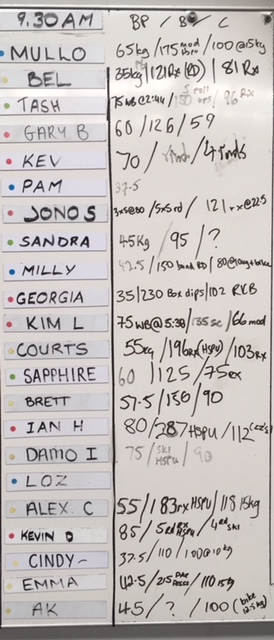 9.30 AM BP / B / C
MULLO 65kg / 175 mod / 100 @ 15kg
BEL 35kg / 121 Rx / 81 Rx
TASH 75 WB @ 2:44 / 150 / 96 RX
GARY B 60 / 126 / 59
KEV 70 / rnds / 4 rnds
PAM 37.5
JONO S 5x5rd / 121 rx @ 22.5
SANDRA 45kg / 95 / ?
MILLY 42.5 / 150 band RD / 80 @ 10kg
GEORGIA 35 / 230 Box dips / 102 RKB
KIM L 75 WB @ 5:38 / 135 sc / 66 mod
COURTS 55kg / 196 Rx (HSPU) / 103 Rx
SAPPHIRE 60 / 125 / 75
BRETT 57.5 / 150 / 90
IAN H 80 / 287 HSPU / 112
DAMO I 75 / SKI HSPU / 90
LOZ
ALEX. C 55 / 183 rx HSPU / 118 15kg
KEVIN D 85 / 5rd HSPU / 4rd SKI
CINDY~ 37.5 / 110 / 100 @ 10kg
EMMA 42.5 / 215 / 110 15kg
AK 45 / ? / 100 (bike 12.5kg)